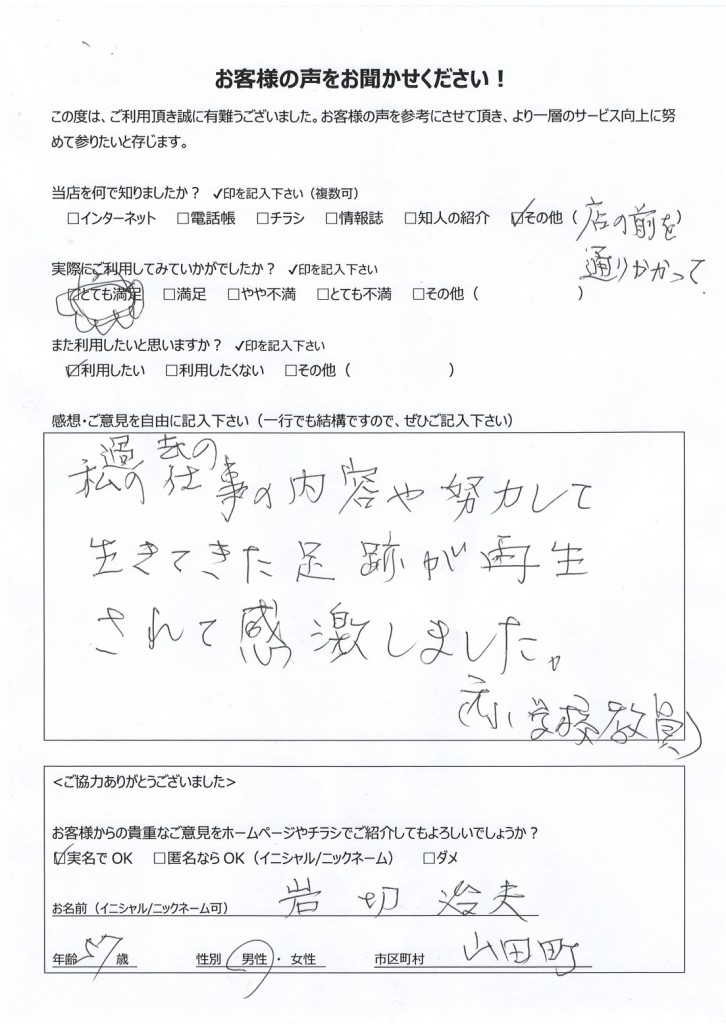 お客様の声をお聞かせください！
この度は、ご利用頂き誠に有難うございました。お客様の声を参考にさせて頂き、より一層のサービス向上に努
めて参りたいと存じます。
当店を何で知りましたか？ ✓印を記入下さい（複数可）
□インターネット □電話帳 □チラシ □情報誌 □知人の紹介 ☑その他（店の前を）
通りかかって
実際にご利用してみていかがでしたか？ ✓印を記入下さい
☑とても満足 □満足 □やや不満 □とても不満 □その他（ ）
また利用したいと思いますか？ ✓印を記入下さい
☑利用したい □利用したくない □その他（ ）
感想・ご意見を自由に記入下さい（一行でも結構ですので、ぜひご記入下さい）
過去の
私の仕事の内容や努力して
生きてきた足跡が再生
されて感激しました。
小学校教員)
<ご協力ありがとうございました>
お客様からの貴重なご意見をホームページやチラシでご紹介してもよろしいでしょうか？
☑実名で OK □匿名なら OK（イニシャル/ニックネーム） □ダメ
お名前（イニシャル/ニックネーム可） 岩切 夫
年齢 57 歳 性別 男性・女性 市区町村 山田町